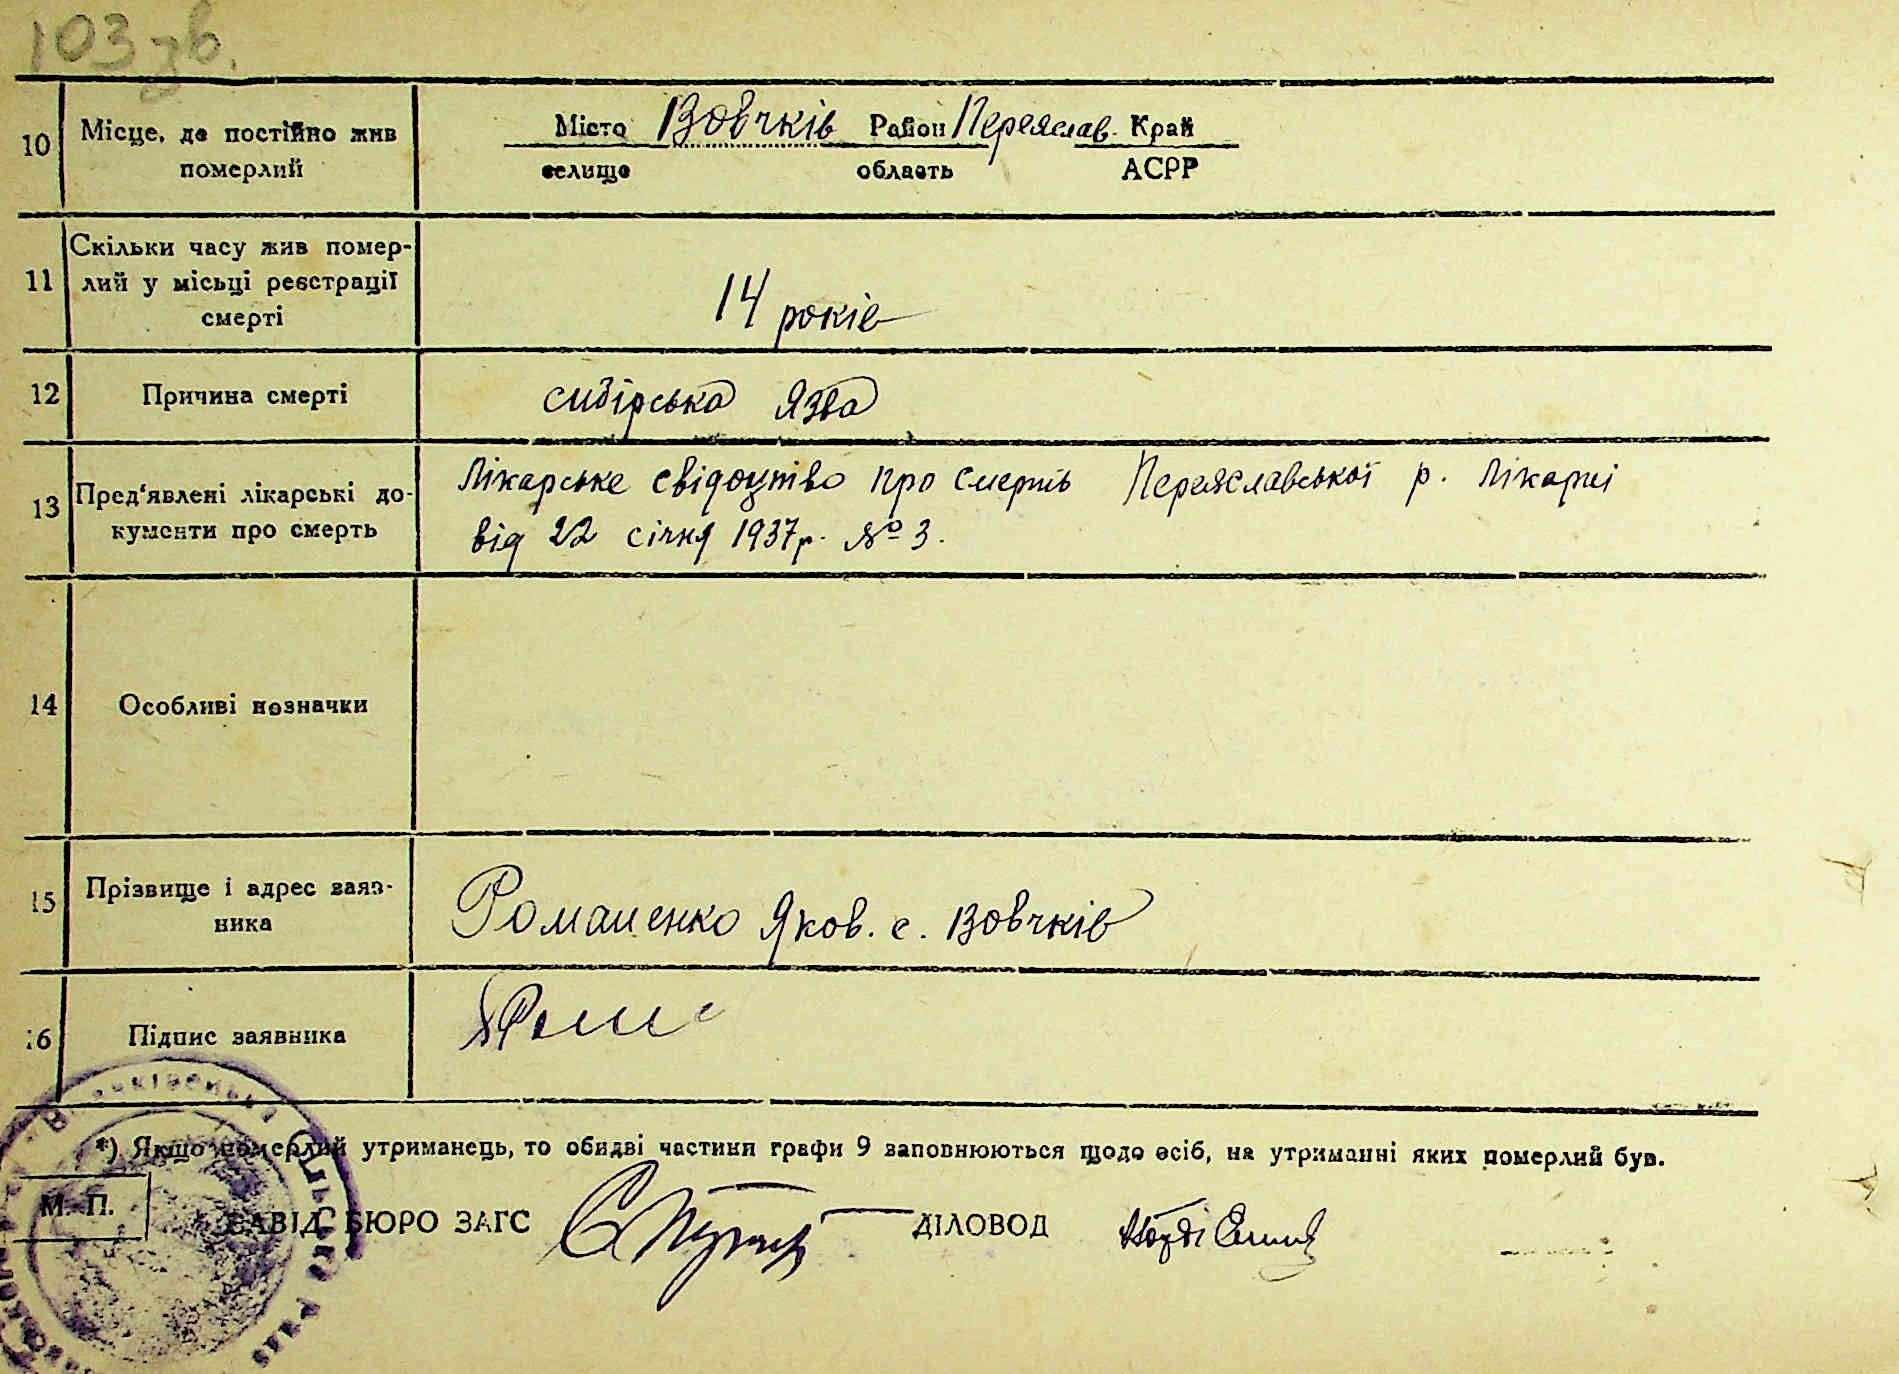 103 зв.
10 Місце, де постійно жив померлий
Місто Вовчків Район Переяслав. Край
селище область АСРР
11 Скільки часу жив помер-
лий у місьці реєстрації
смерті
14 років
12 Причина смерті
сибірська язва
13 Пред'явлені лікарські до-
кументи про смерть
Лікарське свідоцтво про смерть Переяславської р. лікарні
від 22 січня 1937 р. № 3.
14 Особливі позначки
15 Прізвище і адрес заяв-
ника
Романенко Яков. с. Вовчків
16 Підпис заявника
*) Якщо померлий утриманець, то обидві частини графи 9 заповнюються щодо осіб, на утриманні яких померлий був.
М. П.
ЗАВІД. БЮРО ЗАГС ДІЛОВОД